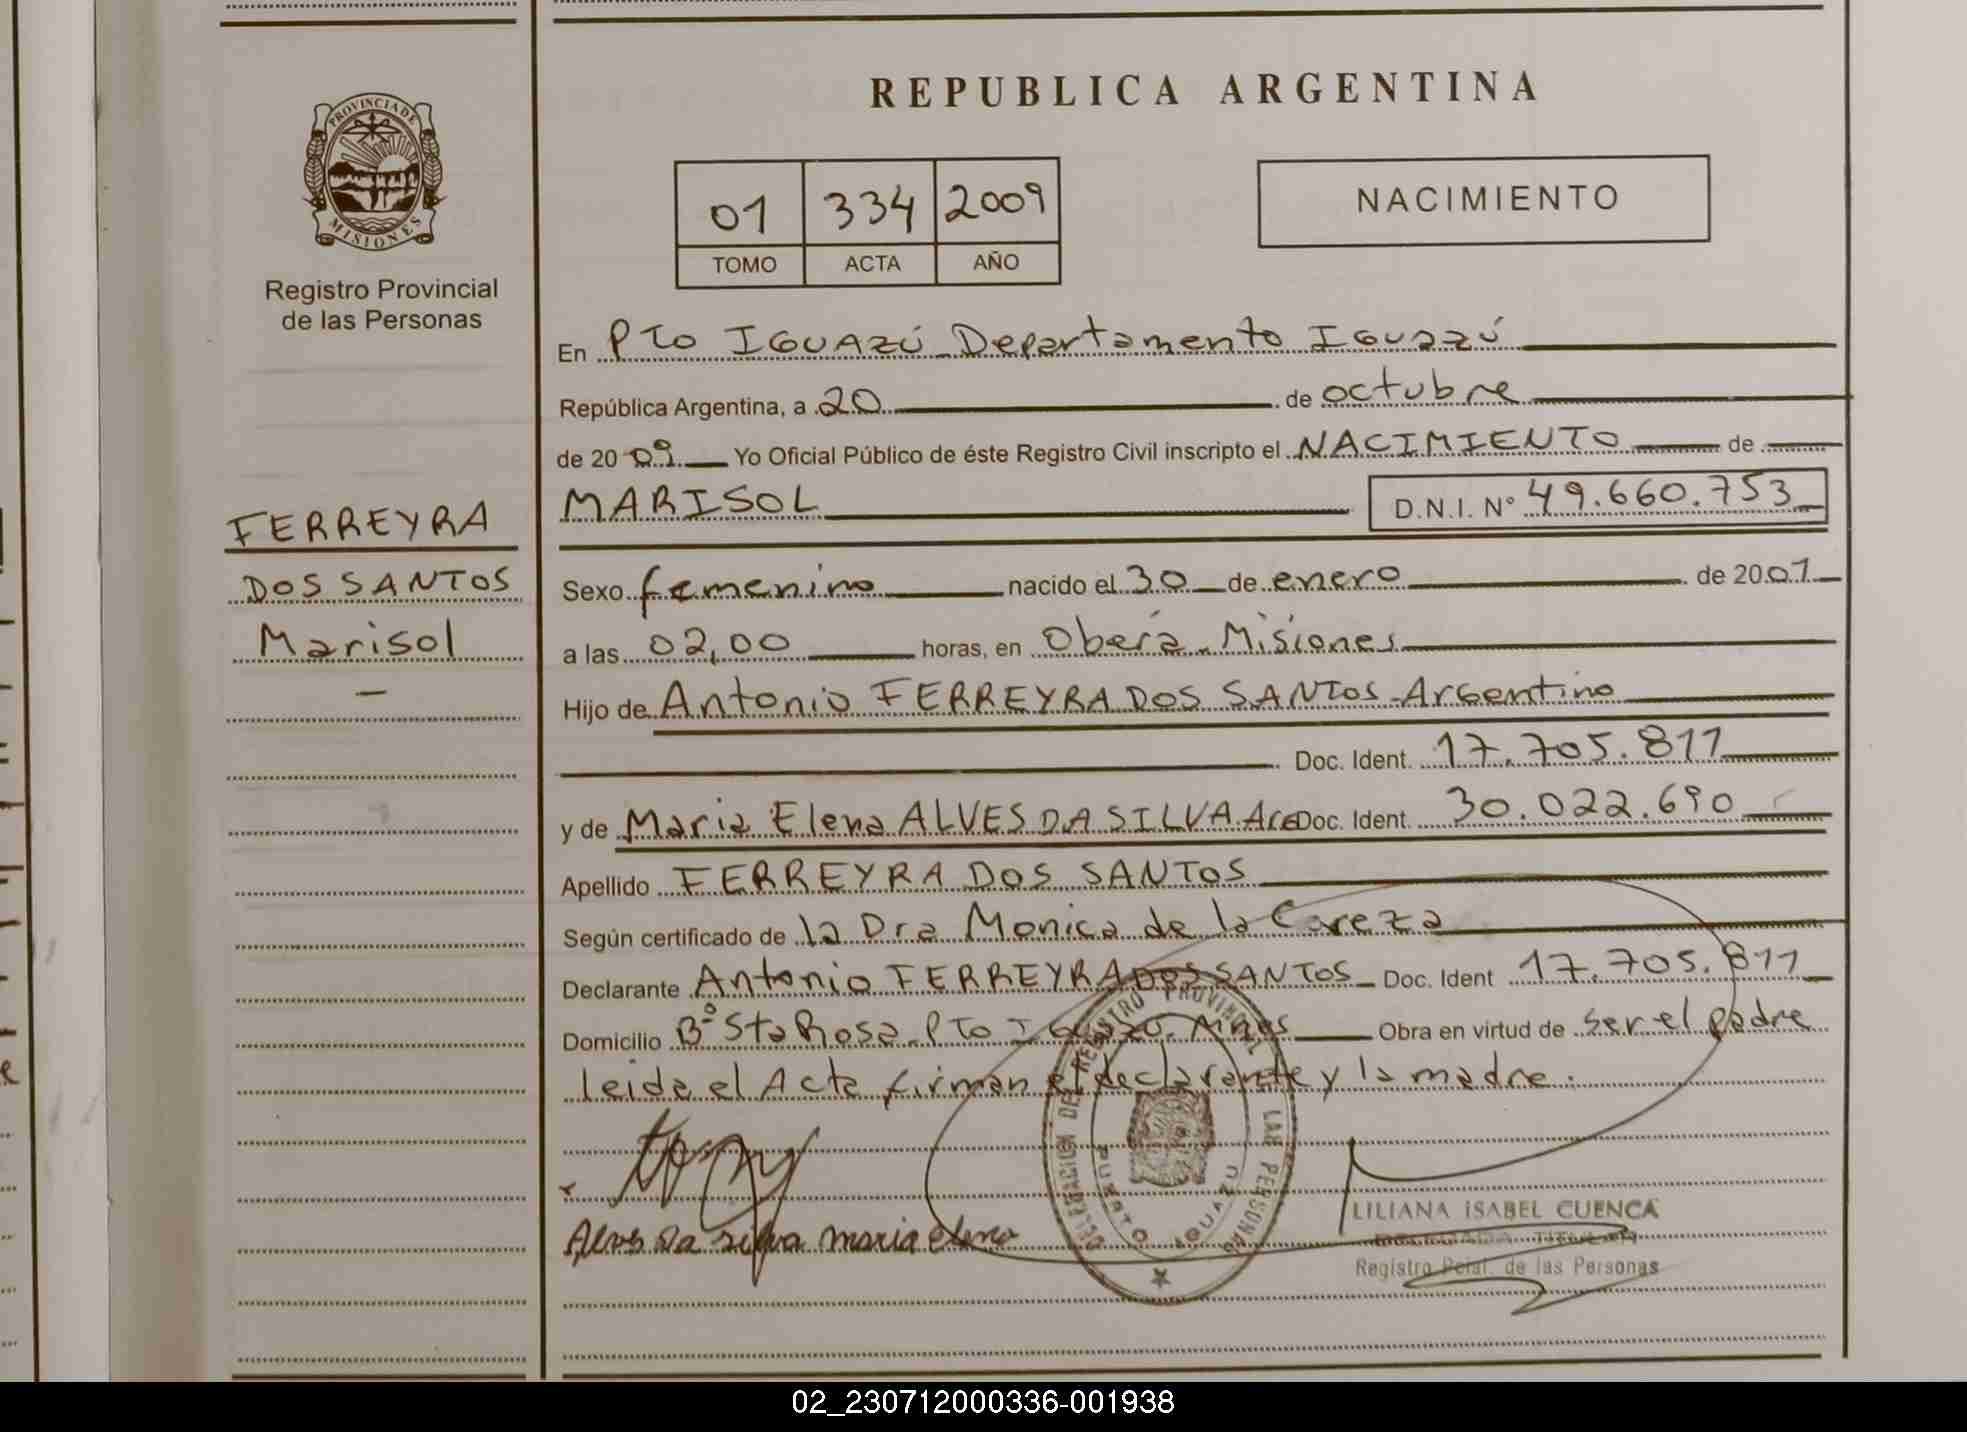 PROVINCIA DE
MISIONES
Registro Provincial
de las Personas
FERREYRA
DOS SANTOS
Marisol
REPUBLICA ARGENTINA
01 334 2009
TOMO ACTA AÑO
NACIMIENTO
En Pto IGUAZÚ Departamento IGUAZÚ
República Argentina, a 20 de octubre
de 20 09 Yo Oficial Público de éste Registro Civil inscripto el NACIMIENTO de
MARISOL D.N.I. Nº 49.660.753
Sexo femenino nacido el 30 de enero de 2001
a las 02,00 horas, en Oberá Misiones
Hijo de Antonio FERREYRA DOS SANTOS - Argentino
Doc. Ident. 17.705.811
y de Maria Elena ALVES DA SILVA. Arg Doc. Ident. 30.022.690
Apellido FERREYRA DOS SANTOS
Según certificado de la Dra Monica de la Careza
Declarante Antonio FERREYRA DOS SANTOS Doc. Ident 17.705.811
Domicilio Bº Sta Rosa. Pto Iguazú. Mnes Obra en virtud de ser el padre
leida el Acta firman el declarante y la madre.
Alves Da silva maria elena
DELEGACION DEL REGISTRO PROVINCIAL LAS PERSONAS
PUERTO IGUAZU
LILIANA ISABEL CUENCA
DELEGADA TITULAR
Registro Pcial. de las Personas
02_230712000336-001938